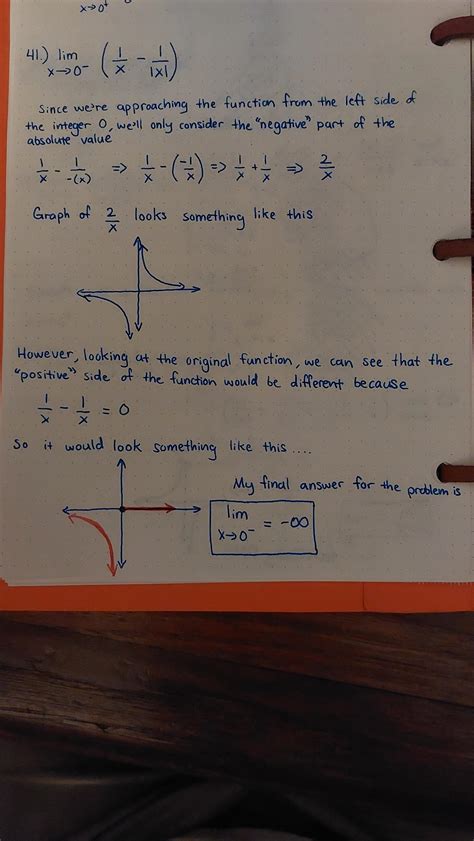 x→0⁺
41.) lim x→0⁻ (1/x - 1/|x|)
Since we're approaching the function from the left side of
the integer 0, we'll only consider the "negative" part of the
absolute value
1/x - 1/-(x) ⇒ 1/x - (-1/x) ⇒ 1/x + 1/x ⇒ 2/x
Graph of 2/x looks something like this
However, looking at the original function, we can see that the
"positive" side of the function would be different because
1/x - 1/x = 0
So it would look something like this ....
My final answer for the problem is
lim x→0⁻ = -∞